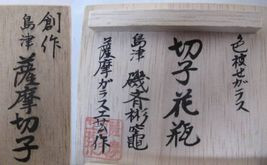 創作
島津薩摩切子
色被せガラス
切子花瓶
島津 磯青彬竈
薩摩ガラス工芸作